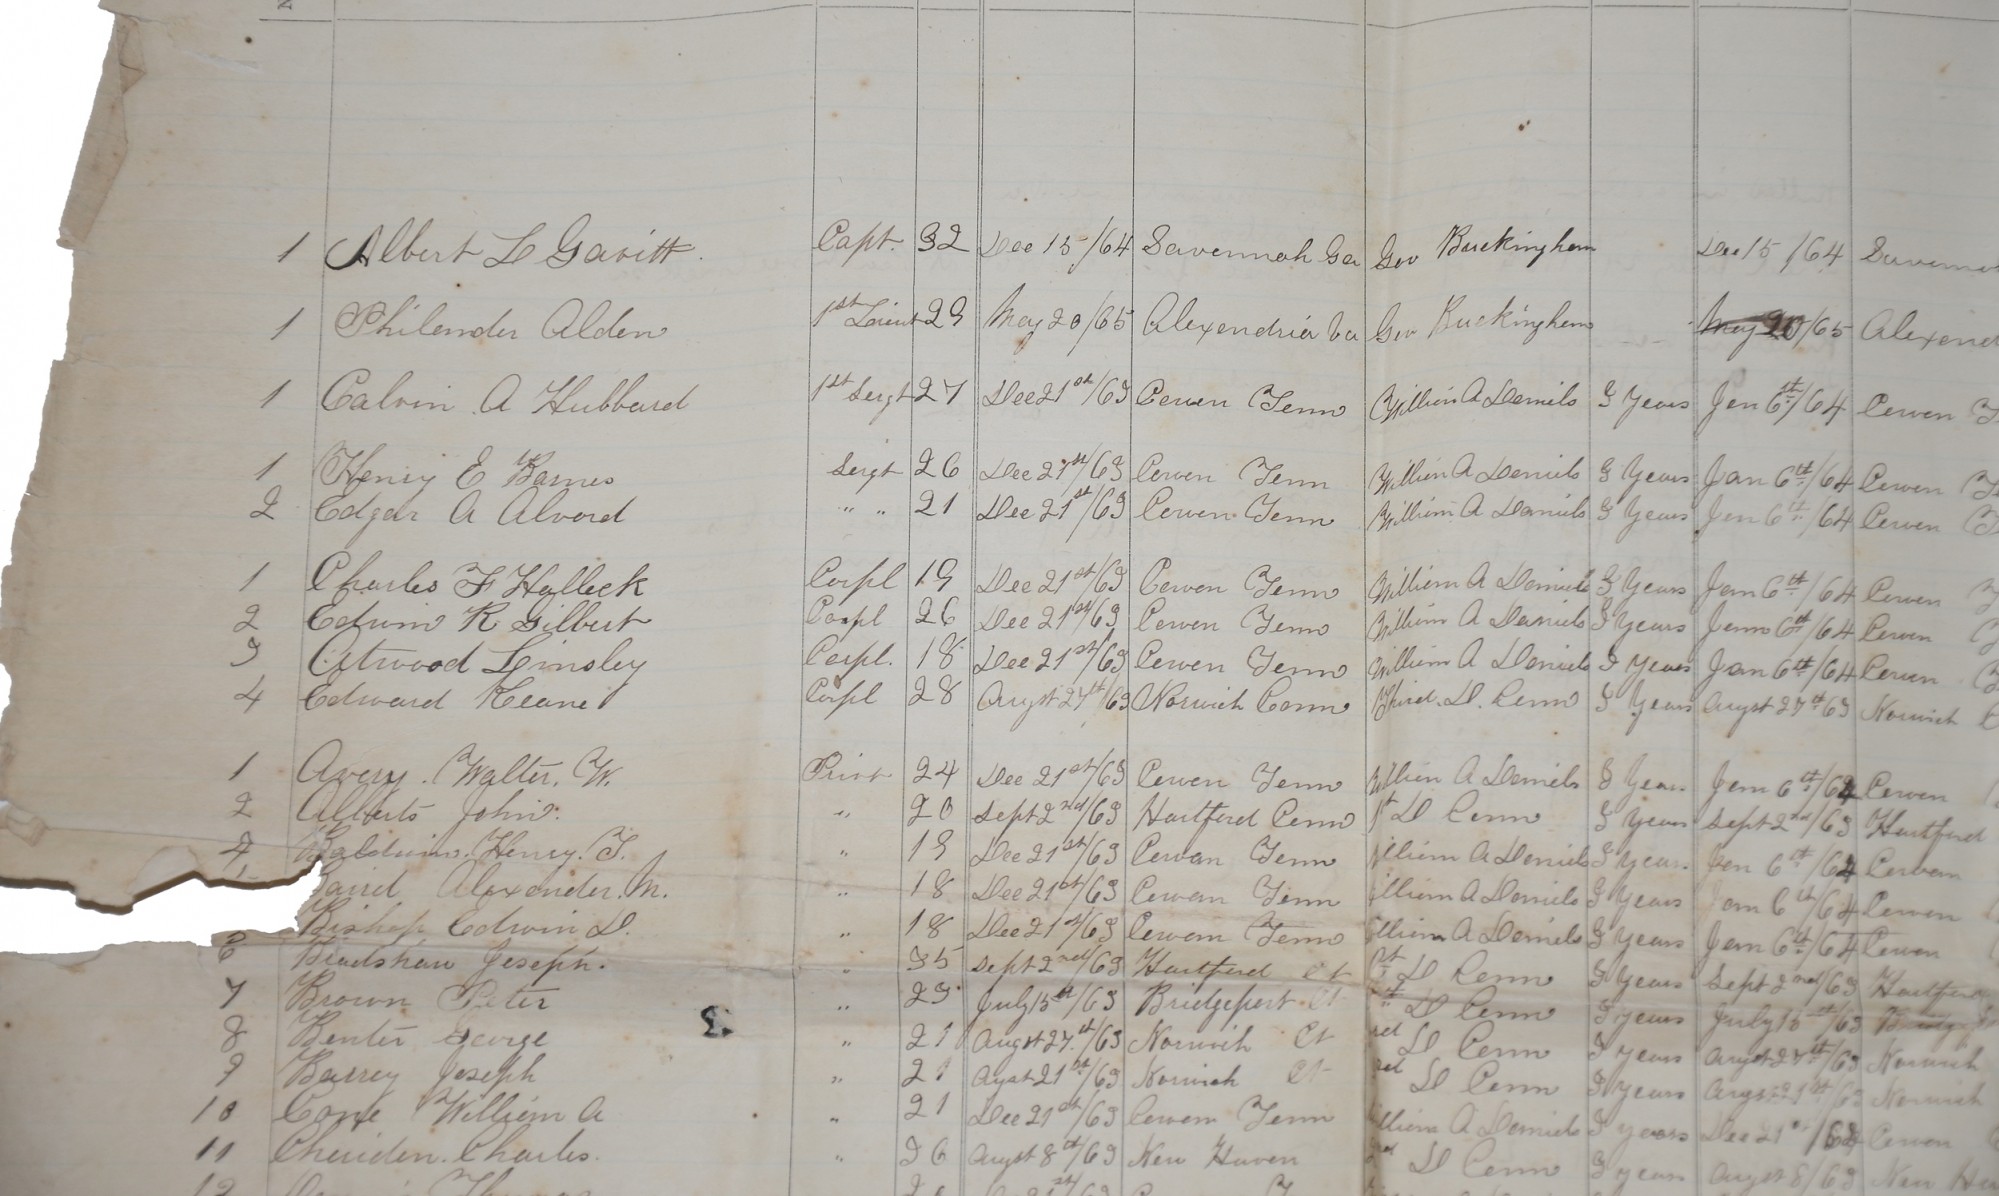 1 Albert L Gavitt. Capt. 32 Dec 15/64 Savennah Ga Gov Buckingham Dec 15/64 Savenna
1 Philender Alden 1st Lieut 29 May 20/65 Alexendria Va Gov Buckingham May 20/65 Alexend
1 Calvin A Hubbard 1st Sergt 27 Dec 21st/63 Cowen Tenn William A Daniels 3 Years Jan 6th/64 Cowen T
1 Henry E Barnes Sergt 26 Dec 21st/63 Cowen Tenn William A Daniels 3 Years Jan 6th/64 Cowen Te
2 Edgar A Alvord " " 21 Dec 21st/63 Cowen Tenn William A Daniels 3 Years Jan 6th/64 Cowen Te
1 Charles F Halleck Corpl 19 Dec 21st/63 Cowen Tenn William A Daniels 3 Years Jan 6th/64 Cowen T
2 Edwin R Gilbert Corpl 26 Dec 21st/63 Cowen Tenn William A Daniels 3 Years Jann 6th/64 Cowen T
3 Attwood Linsley Corpl. 18 Dec 21st/63 Cowen Tenn William A Daniels 3 Years Jan 6th/64 Cowen T
4 Edward Keane Corpl 28 Augst 27th/63 Norwich Conn Third. D. Conn 3 Years Augst 27th 63 Norwich C
1 Avery. Walter. W. Privt 24 Dec 21st/63 Cowen Tenn William A Daniels 3 Years Jan 6th/64 Cowen
2 Alberts John. " 20 Sept 2nd/63 Hartford Conn 1st D Conn 3 Years Sept 2nd/63 Hartford
Baldwin. Henry. T. " 19 Dec 21st/63 Cowan Tenn illiam A Daniels 3 Years Jan 6th/64 Cowan
aird Alexender. M. " 18 Dec 21st/63 Cowan Tenn illiam A Daniels 3 Years Jan 6th/64 Cowen
Bishop Edwin D. " 18 Dec 21st/63 Cowan Tenn illiam A Daniels 3 Years Jan 6th/64 Cowen
6 Bradshaw Joseph. " 35 Sept 2nd/63 Hartford Ct st D Conn 3 Years Sept 2nd/63 Hartford
7 Brown Peter " 29 July 15th/63 Bridgeport Ct D Conn 3 Years July 15th/63 Bridg
8 Benter George " 21 Augst 27th/63 Norwich Ct D Conn 3 Years Augst 27th/63 Norwich
9 Barrey Joseph " 21 Augst 21st/63 Norwich Ct D Conn 3 Years Augst 21st/63 Norwich
10 Cone William A " 21 Dec 21st/63 Cowen Tenn illiam A Daniels 3 Years Dec 21st/63 Cowen
11 Cheriden. Charles. " 26 Augst 8th/63 New Haven D Conn 3 Years Augst 8/63 New Ha
12